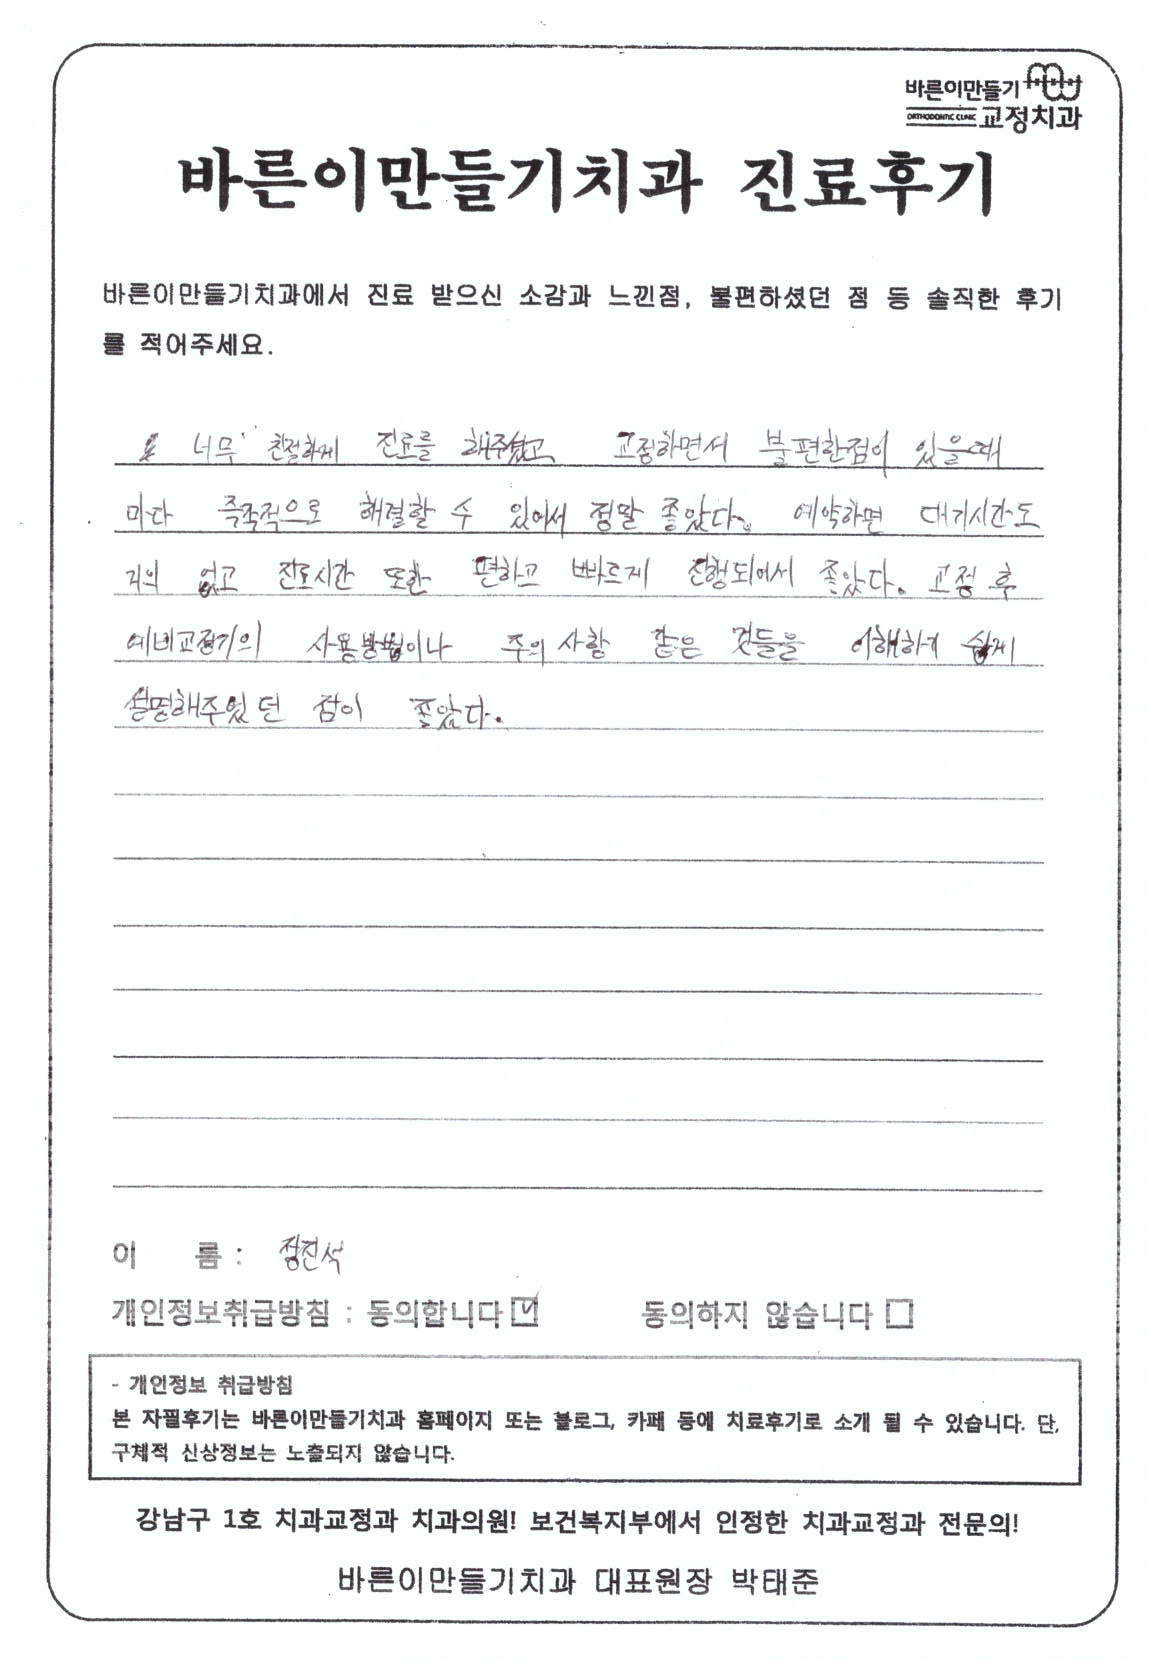 바른이만들기
ORTHODONTIC CLINIC 교정치과
바른이만들기치과 진료후기
바른이만들기치과에서 진료 받으신 소감과 느낀점, 불편하셨던 점 등 솔직한 후기
를 적어주세요.
너무 친절하게 진료를 해주셨고 교정하면서 불편한점이 있을때
마다 즉각적으로 해결할 수 있어서 정말 좋았다. 예약하면 대기시간도
거의 없고 진료시간 또한 편하고 빠르게 진행되어서 좋았다. 교정 후
예비교정기의 사용방법이나 주의 사항 같은 것들을 이해하기 쉽게
설명해주었던 점이 좋았다.
이 름 : 정진석
개인정보취급방침 : 동의합니다 동의하지 않습니다
- 개인정보 취급방침
본 자필후기는 바른이만들기치과 홈페이지 또는 블로그, 카페 등에 치료후기로 소개 될 수 있습니다. 단,
구체적 신상정보는 노출되지 않습니다.
강남구 1호 치과교정과 치과의원! 보건복지부에서 인정한 치과교정과 전문의!
바른이만들기치과 대표원장 박태준